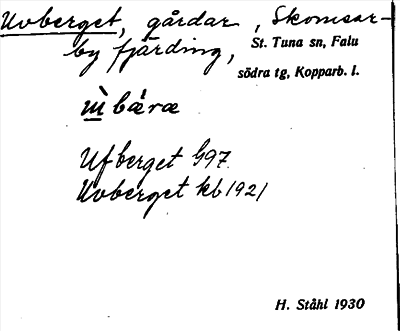 Uvberget, gårdar, Skomsar-
by fjärding, St. Tuna sn, Falu
södra tg, Kopparb. l.
Ufberget 1797
Uvberget kb 1921
H. Ståhl 1930